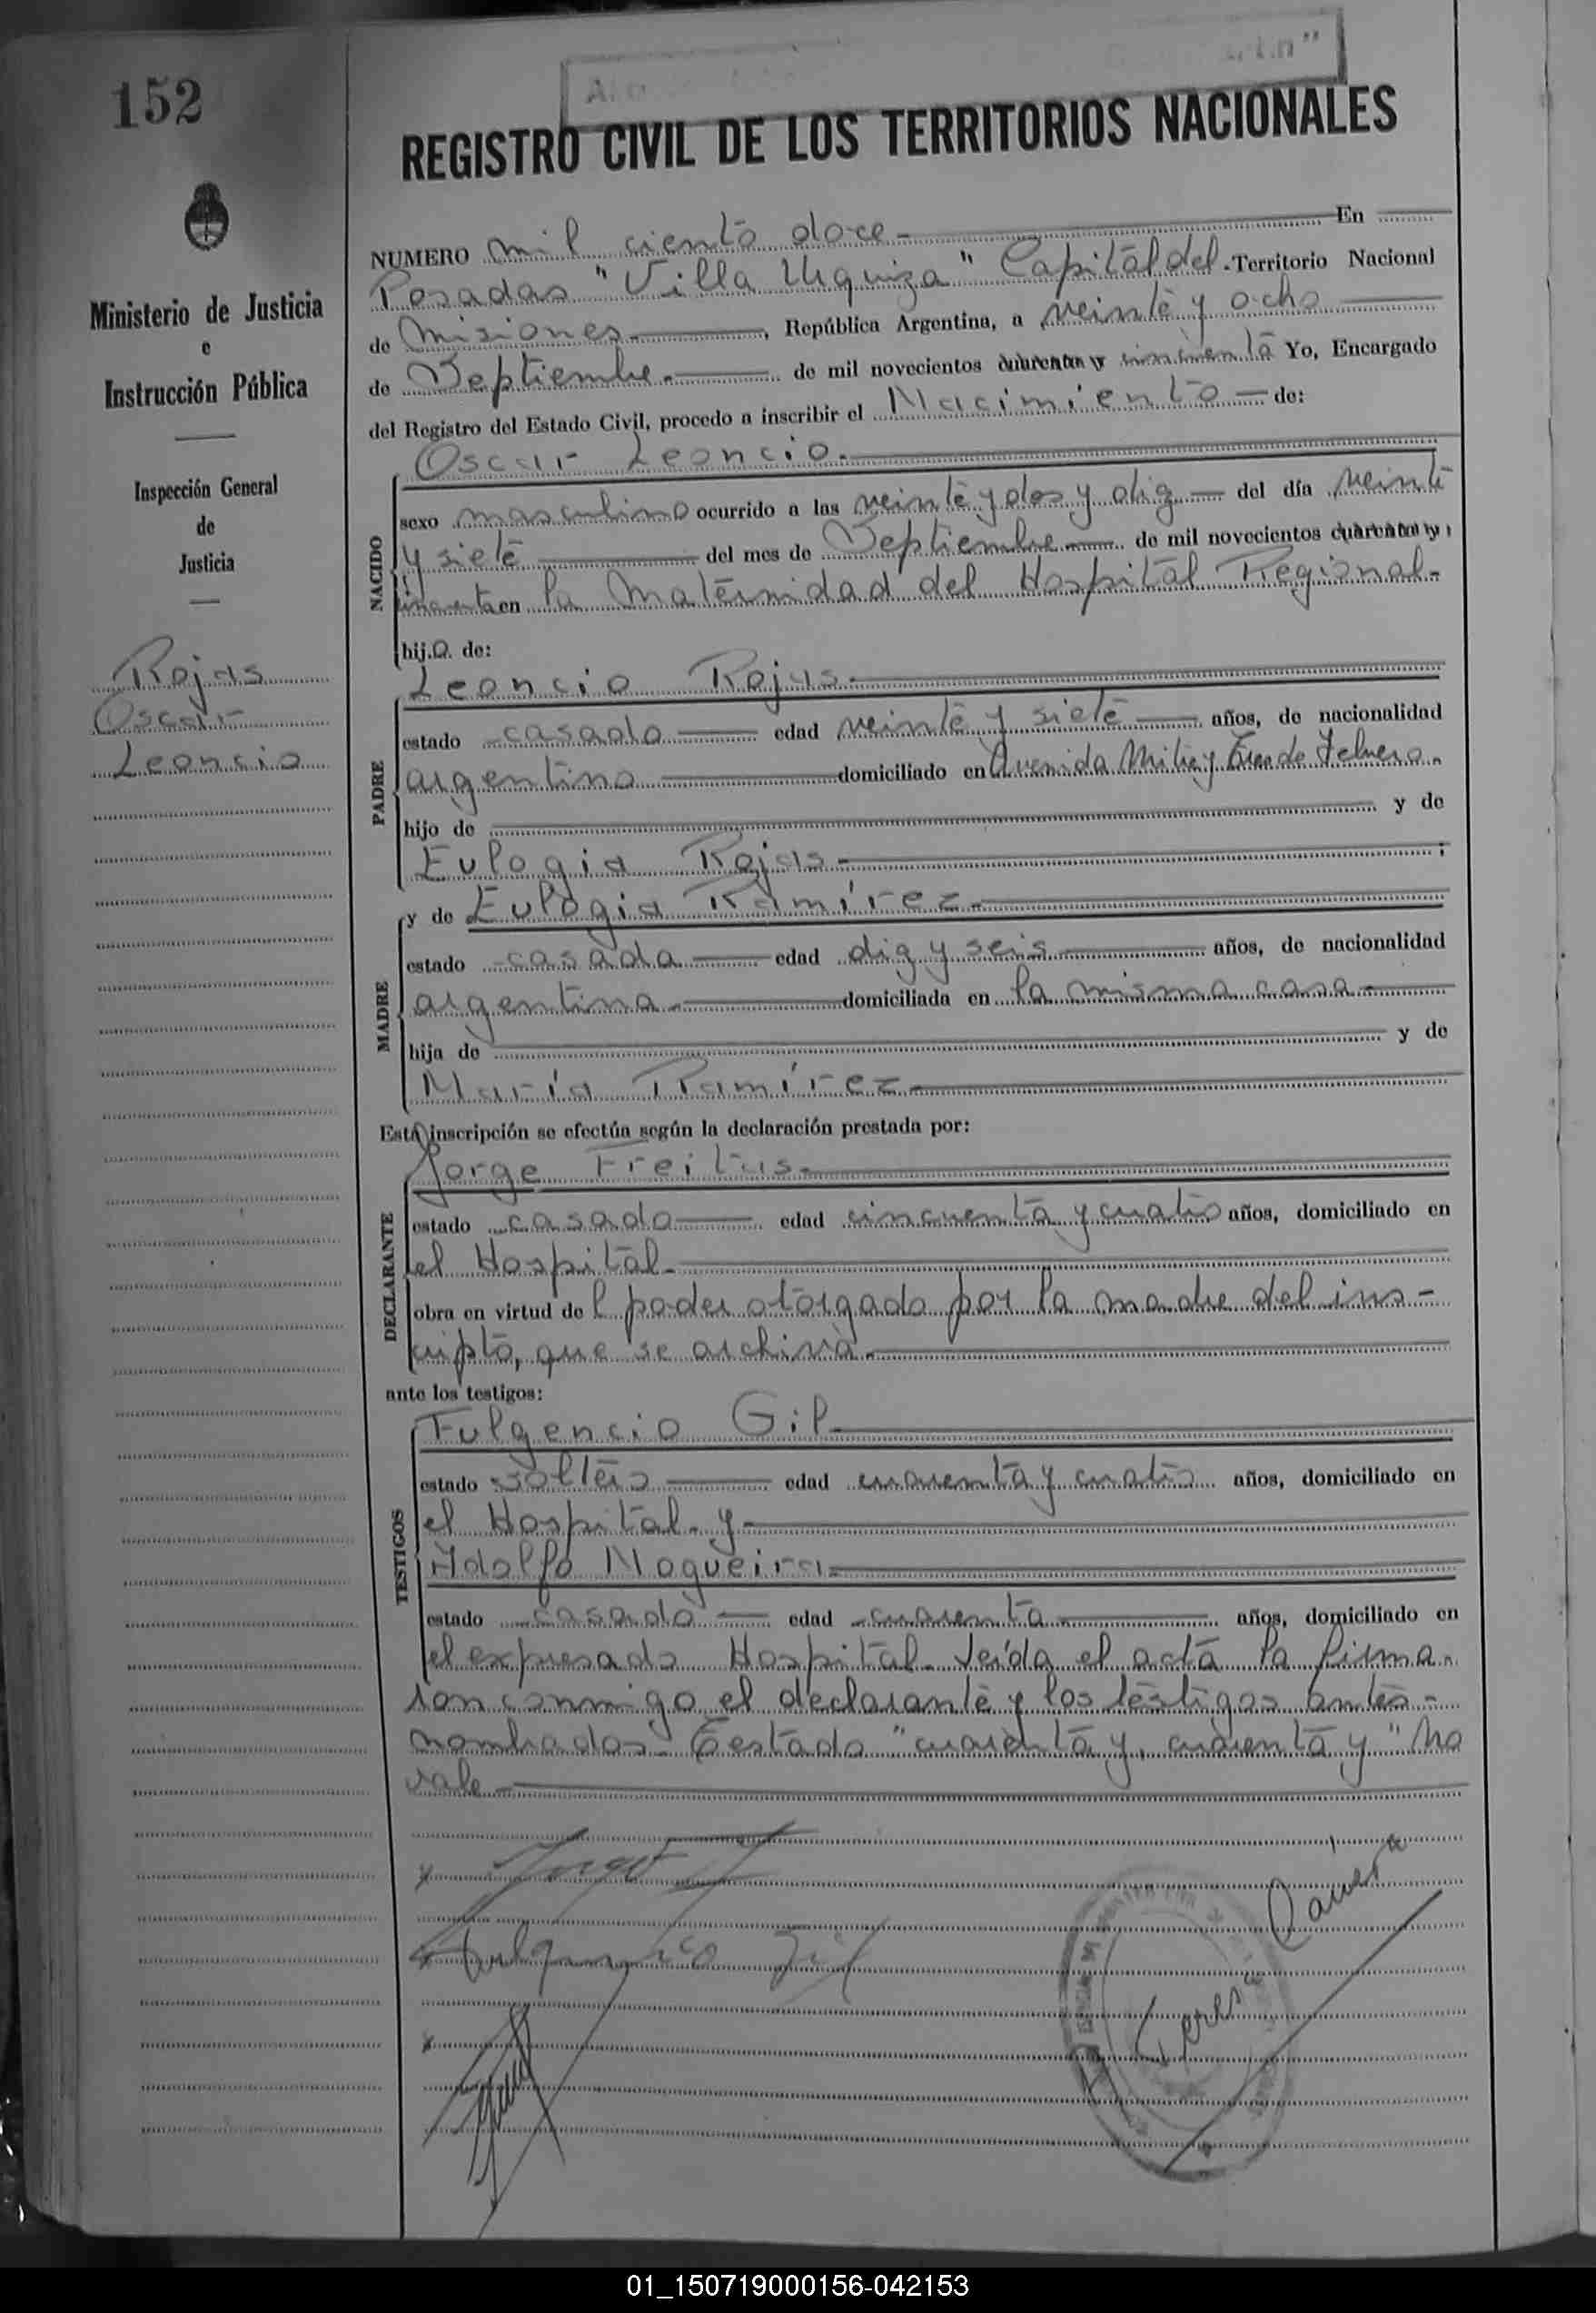 152
REGISTRO CIVIL DE LOS TERRITORIOS NACIONALES
Ministerio de Justicia
e
Instrucción Pública
Inspección General
de
Justicia
Rojas
Oscar
Leoncio
NUMERO mil ciento doce.- En
Posadas "Villa Urquiza" Capital del Territorio Nacional
de Misiones, República Argentina, a veinte y ocho
de Septiembre.- de mil novecientos cuarenta y cincuenta Yo, Encargado
del Registro del Estado Civil, procedo a inscribir el Nacimiento de:
NACIDO
Oscar Leoncio.
sexo masculino ocurrido a las veinte y dos y diez del día veinte
y siete del mes de Septiembre de mil novecientos cuarenta y
cincuenta en la Maternidad del Hospital Regional.
hijo de:
PADRE
Leoncio Rojas.
estado casado edad veinte y siete años, de nacionalidad
argentino domiciliado en Avenida Mitre y de Febrero.
hijo de y de
Eulogia Rojas. ;
MADRE
y de Eulogia Ramírez.
estado casada edad diez y seis años, de nacionalidad
argentina. domiciliada en la misma casa.
hija de y de
María Ramírez.
Esta inscripción se efectúa según la declaración prestada por:
DECLARANTE
Jorge Freitas.
estado casado edad cincuenta y cuatro años, domiciliado en
el Hospital.
obra en virtud del poder otorgado por la madre del ins-
cripto, que se archiva.
ante los testigos:
TESTIGOS
Fulgencio Gil
estado soltero edad cuarenta y cuatro años, domiciliado en
el Hospital. y
Adolfo Nogueira
estado casado edad cuarenta años, domiciliado en
el expresado Hospital. Leída el acta la firma-
ron conmigo el declarante y los testigos antes-
nombrados. Testado "cuarenta y, cuarenta y" No
vale.
Fulgencio Gil
Teresa
01_150719000156-042153